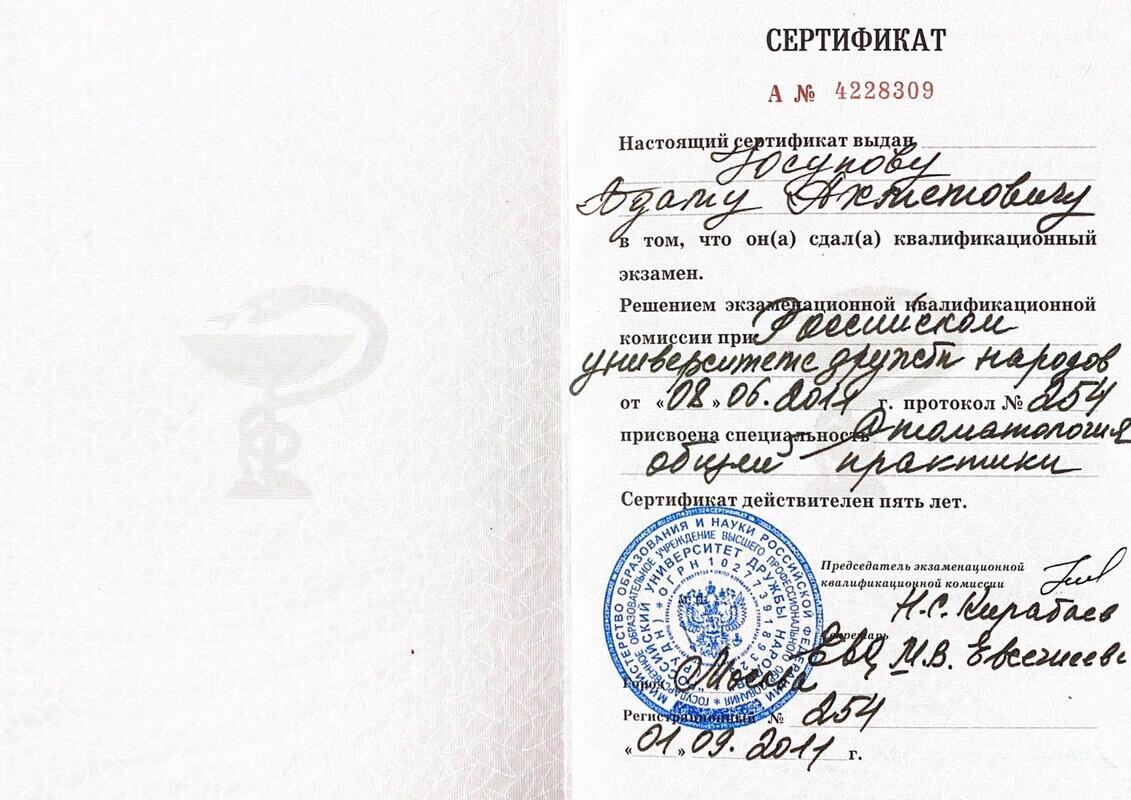 СЕРТИФИКАТ
А № 4228309
Настоящий сертификат выдан
Юсупову
Адаму Ахметовичу
в том, что он(а) сдал(а) квалификационный
экзамен.
Решением экзаменационной квалификационной
комиссии при Российском
университете дружбы народов
от «08» 06. 2011 г. протокол № 254
присвоена специальность Стоматология
общей практики
Сертификат действителен пять лет.
Председатель экзаменационной
квалификационной комиссии
Н.С. Кирабаев
Секретарь
М.В. Евсеичева
МИНИСТЕРСТВО ОБРАЗОВАНИЯ И НАУКИ РОССИЙСКОЙ ФЕДЕРАЦИИ
ГОСУДАРСТВЕННОЕ ОБРАЗОВАТЕЛЬНОЕ УЧРЕЖДЕНИЕ ВЫСШЕГО ПРОФЕССИОНАЛЬНОГО ОБРАЗОВАНИЯ
РОССИЙСКИЙ УНИВЕРСИТЕТ ДРУЖБЫ НАРОДОВ
Город Москва
Регистрационный № 254
«01» 09. 2011 г.